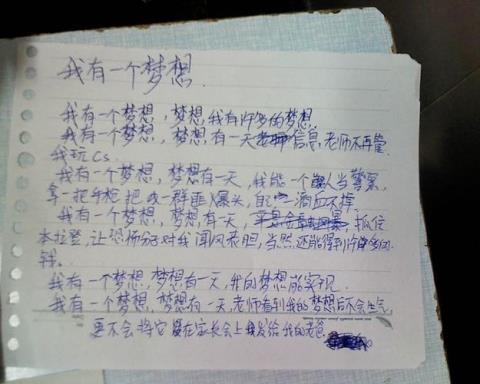 我有一个梦想
我有一个梦想,梦想,我有许多的梦想
我有一个梦想,梦想有一天 信息,老师不再管
我玩CS.
我有一个梦想,梦想有一天,我能一个人当警察,
拿一把手枪把 一群匪爆头,自 滴血不掉.
我有一个梦想,梦想有一天, 抓住
本拉登,让恐怖分子对我闻风丧胆,当然还能得到许多的
钱。
我有一个梦想,梦想有一天,我的梦想能实现
我有一个梦想,梦想有一天,老师看到我的梦想后不会生气,
更不会将它 在家长会上 发给我的老爸